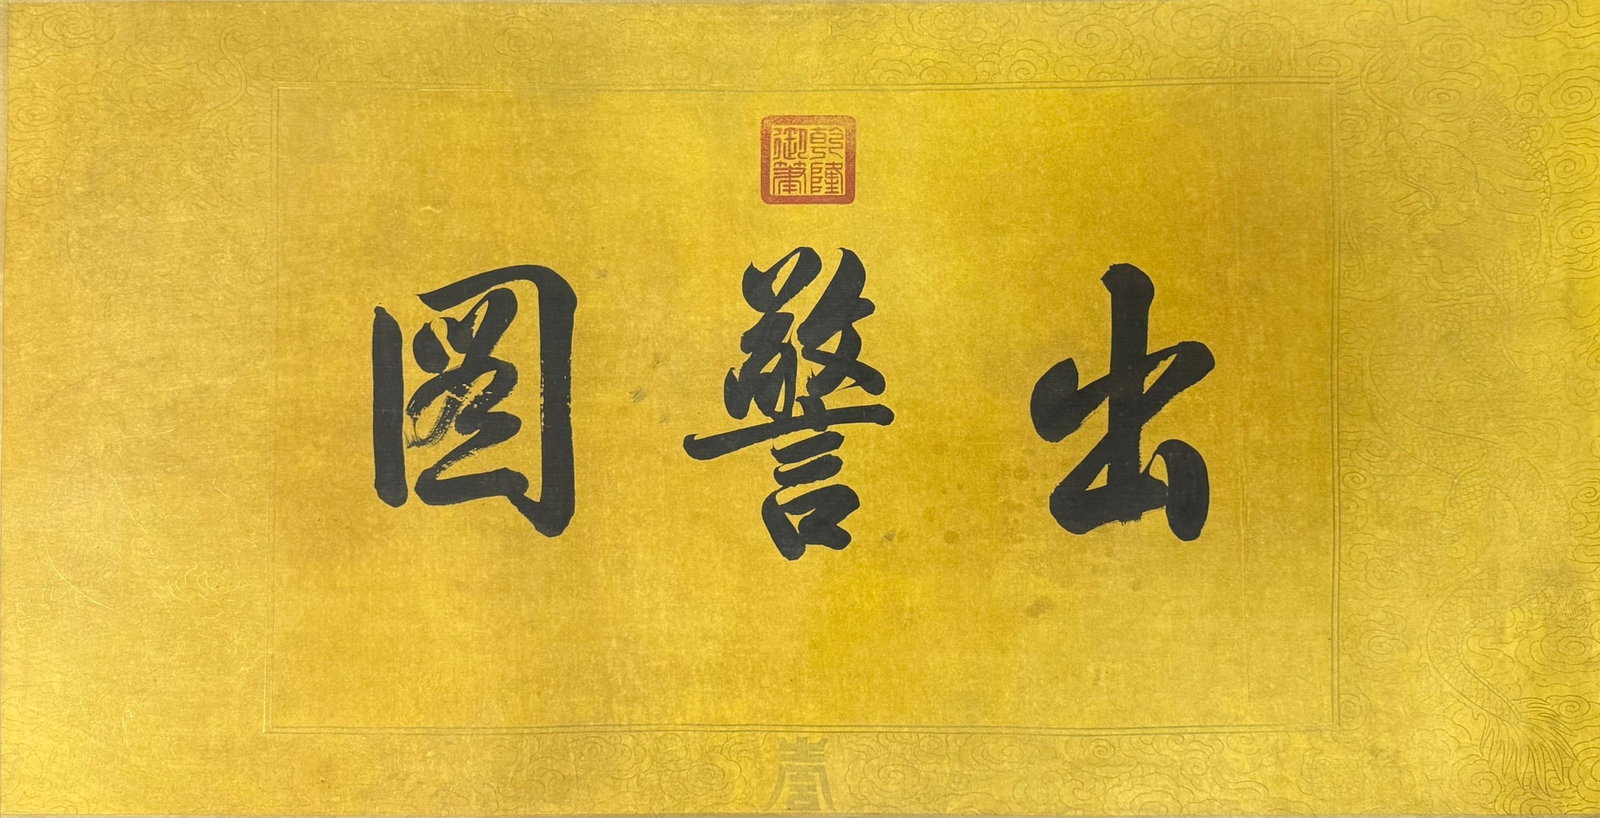 乾隆
御筆
出警圖